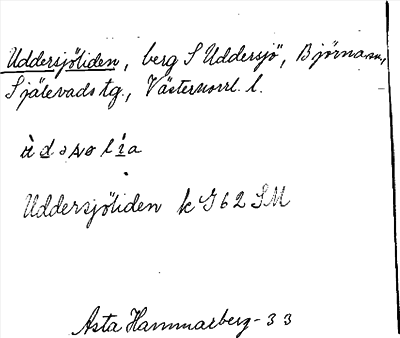 Uddersjöliden, berg S Uddersjö, Björna sn,
Själevads tg., Västernorrl. l.
Uddersjöliden k G62 SM
Asta Hammarberg - 33